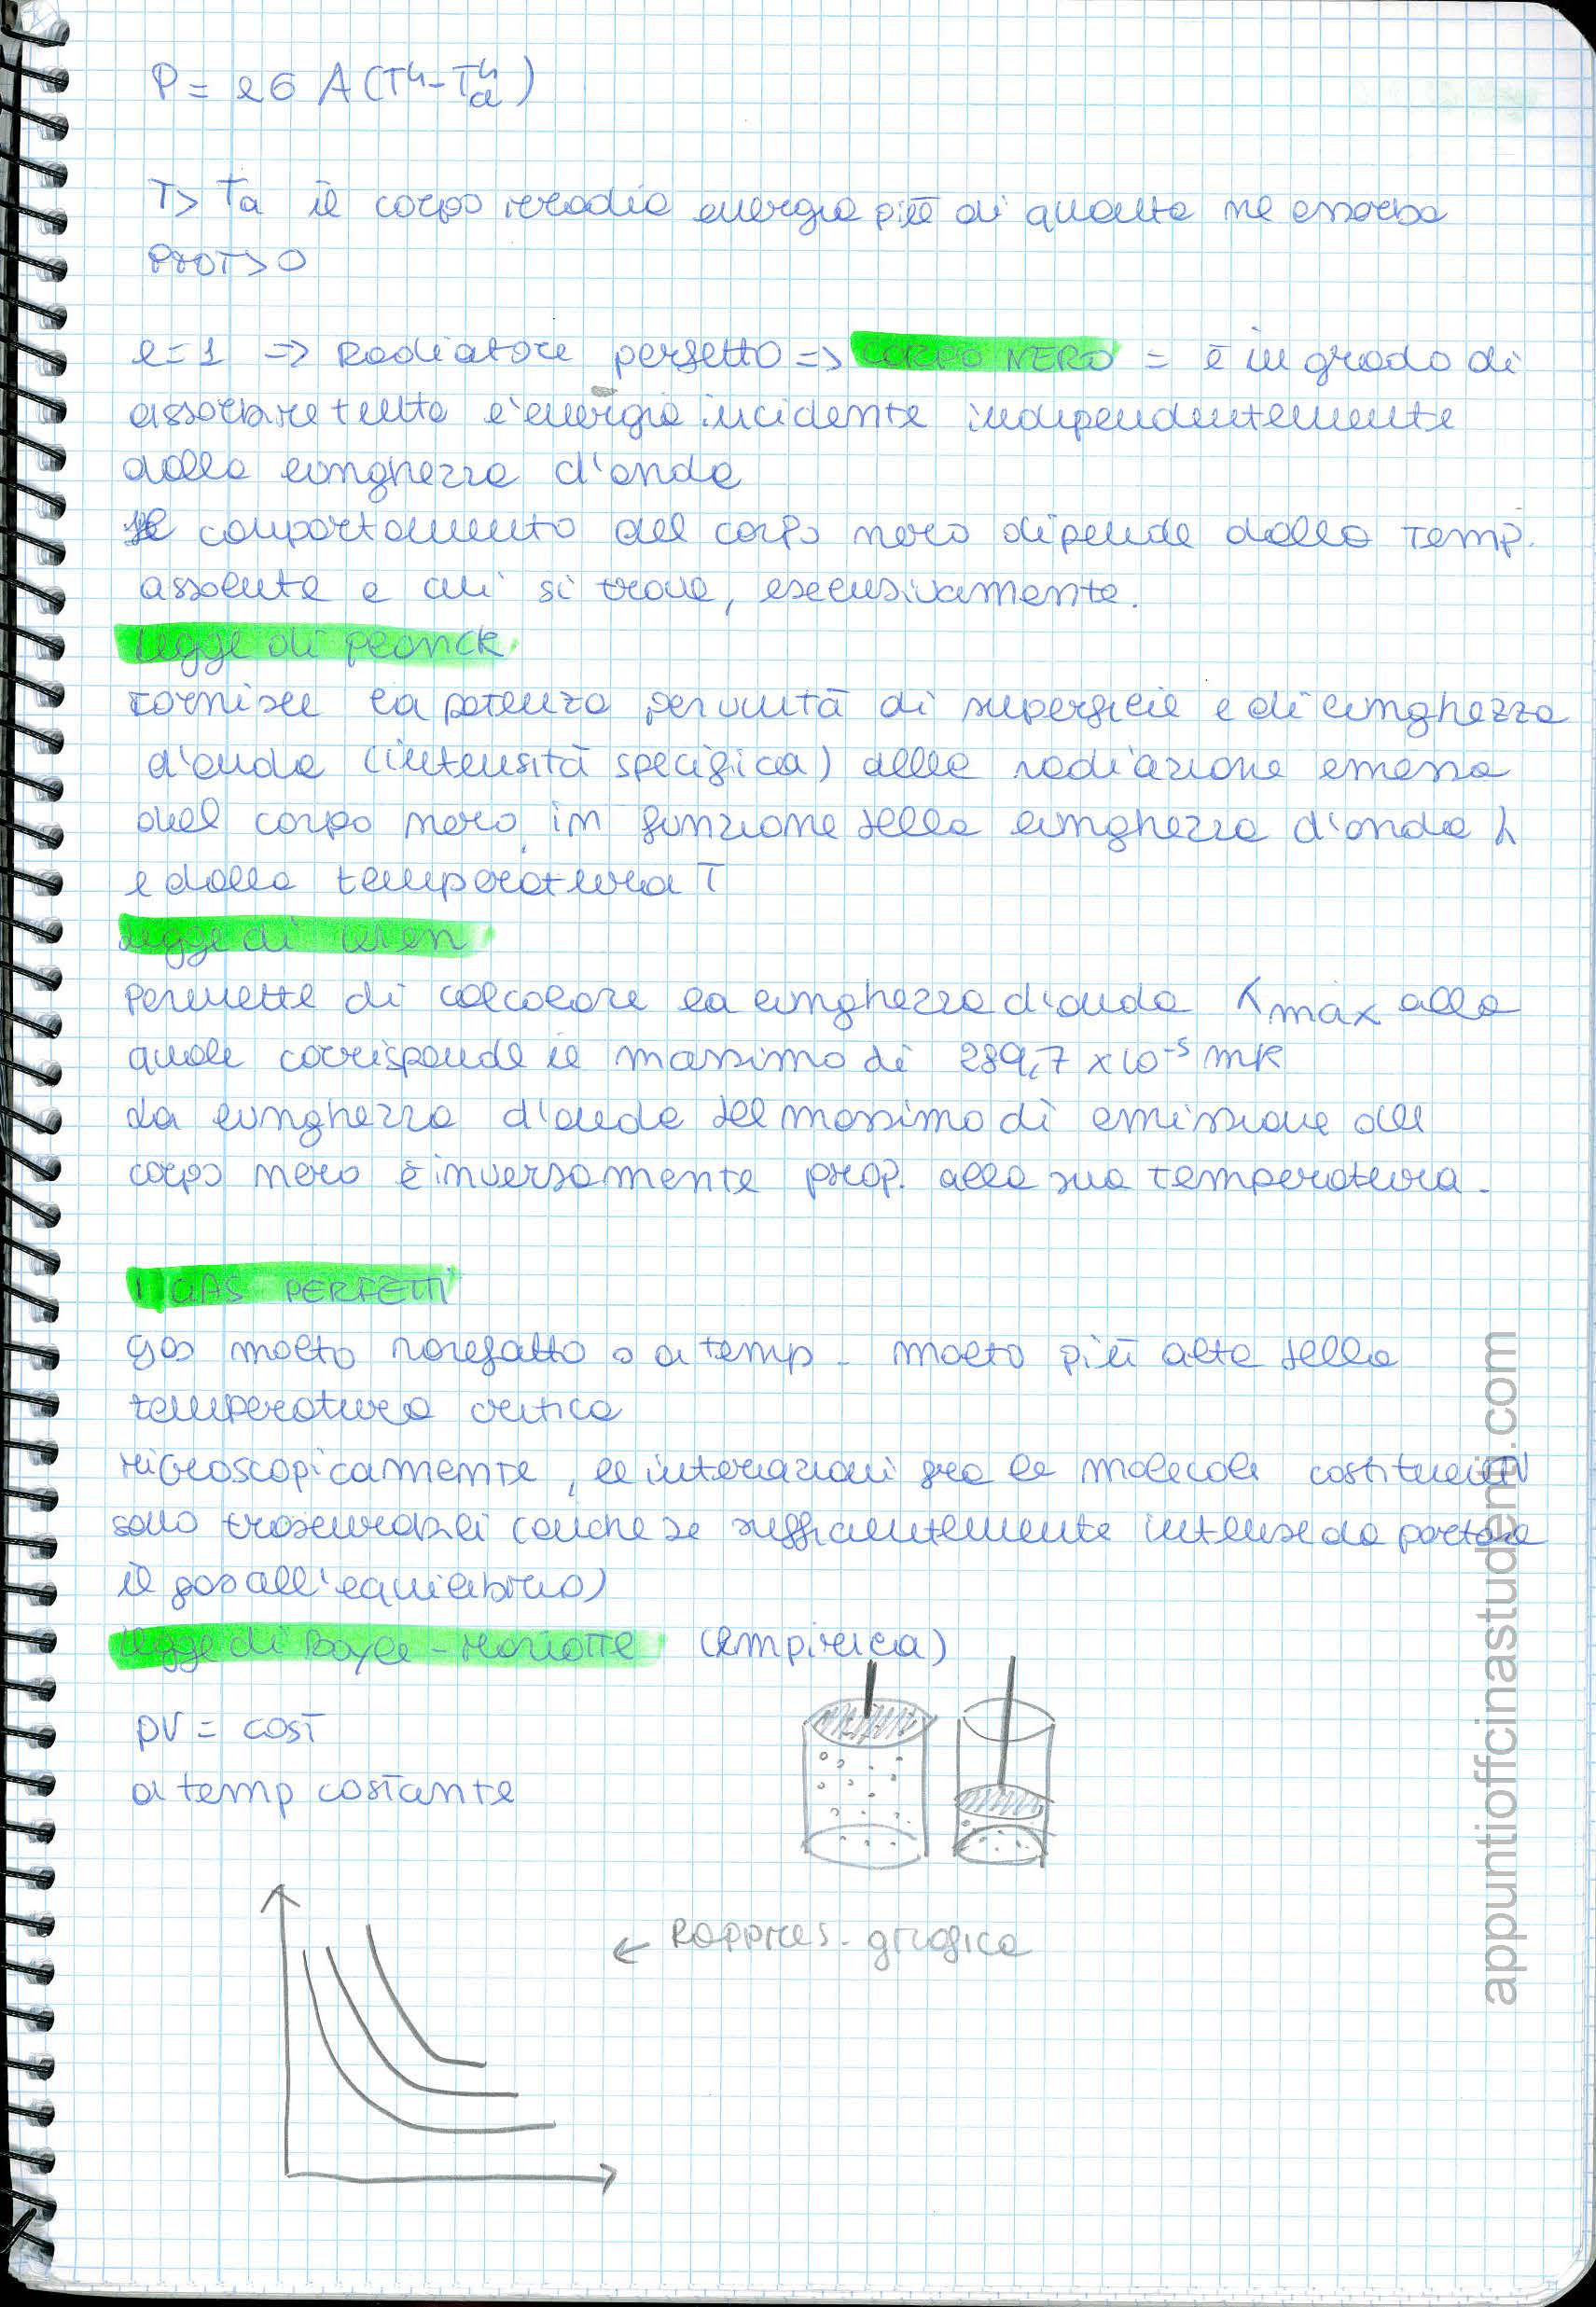 P = eσ A(T⁴-Ta⁴)
T> Ta il corpo irradia energia più di quanta ne assorba
PTOT>0
e=1 => Radiatore perfetto => CORPO NERO = è in grado di
assorbire tutta l'energia incidente indipendentemente
dalla lunghezza d'onda
Il comportamento del corpo nero dipende dalla temp.
assoluta a cui si trova, esclusivamente.
Legge di Planck
Fornisce la potenza per unità di superficie e di lunghezza
d'onda (intensità specifica) della radiazione emessa
dal corpo nero, in funzione della lunghezza d'onda λ
e dalla temperatura T
Legge di Wien
Permette di calcolare la lunghezza d'onda λmax alla
quale corrisponde il massimo di 289,7 x10⁻⁵ mK
La lunghezza d'onda del massimo di emissione del
corpo nero è inversamente prop. alla sua temperatura.
I GAS PERFETTI
gas molto rarefatto o a temp. molto più alta della
temperatura critica
Microscopicamente, le interazioni fra le molecole costituenti
sono trascurabili (anche se sufficientemente intense da portare
il gas all'equilibrio)
Legge di Boyle-Mariotte (empirica)
pV = cost
a temp costante
← Rappres. grafica
appuntioffcinastudenti.com